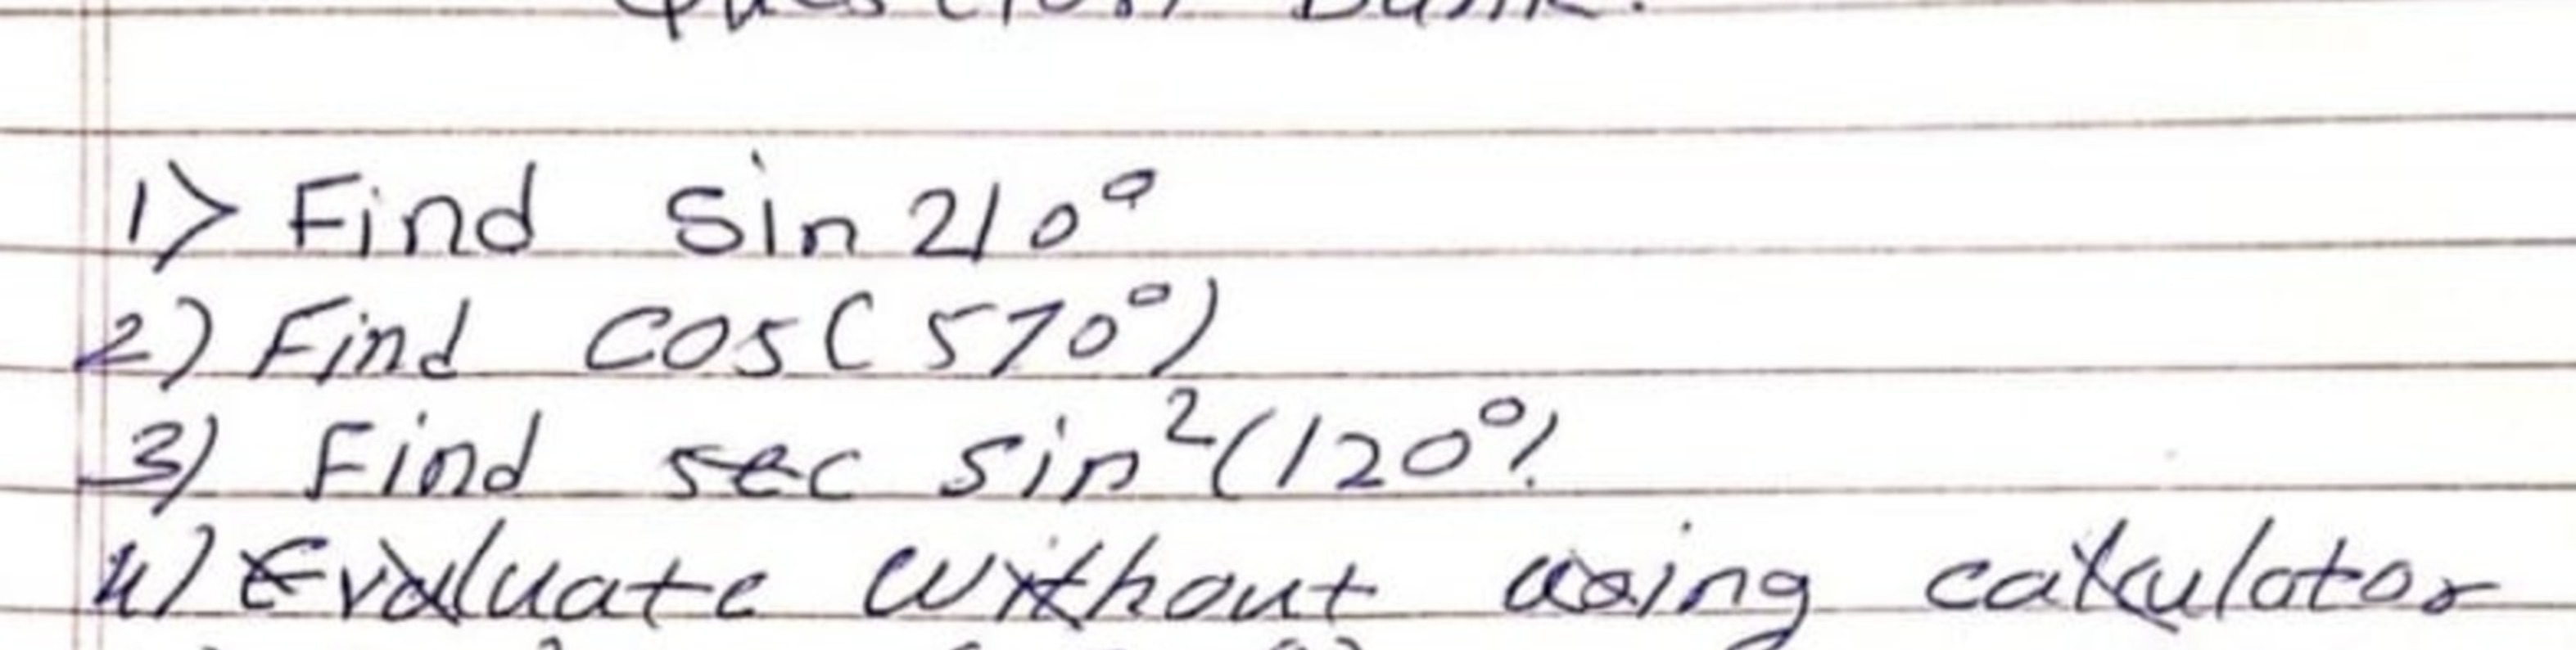 Question Bank.
1) Find Sin 210°
2) Find cos(570°)
3) Find sec sin²(120°)
4) Evaluate without using calculator